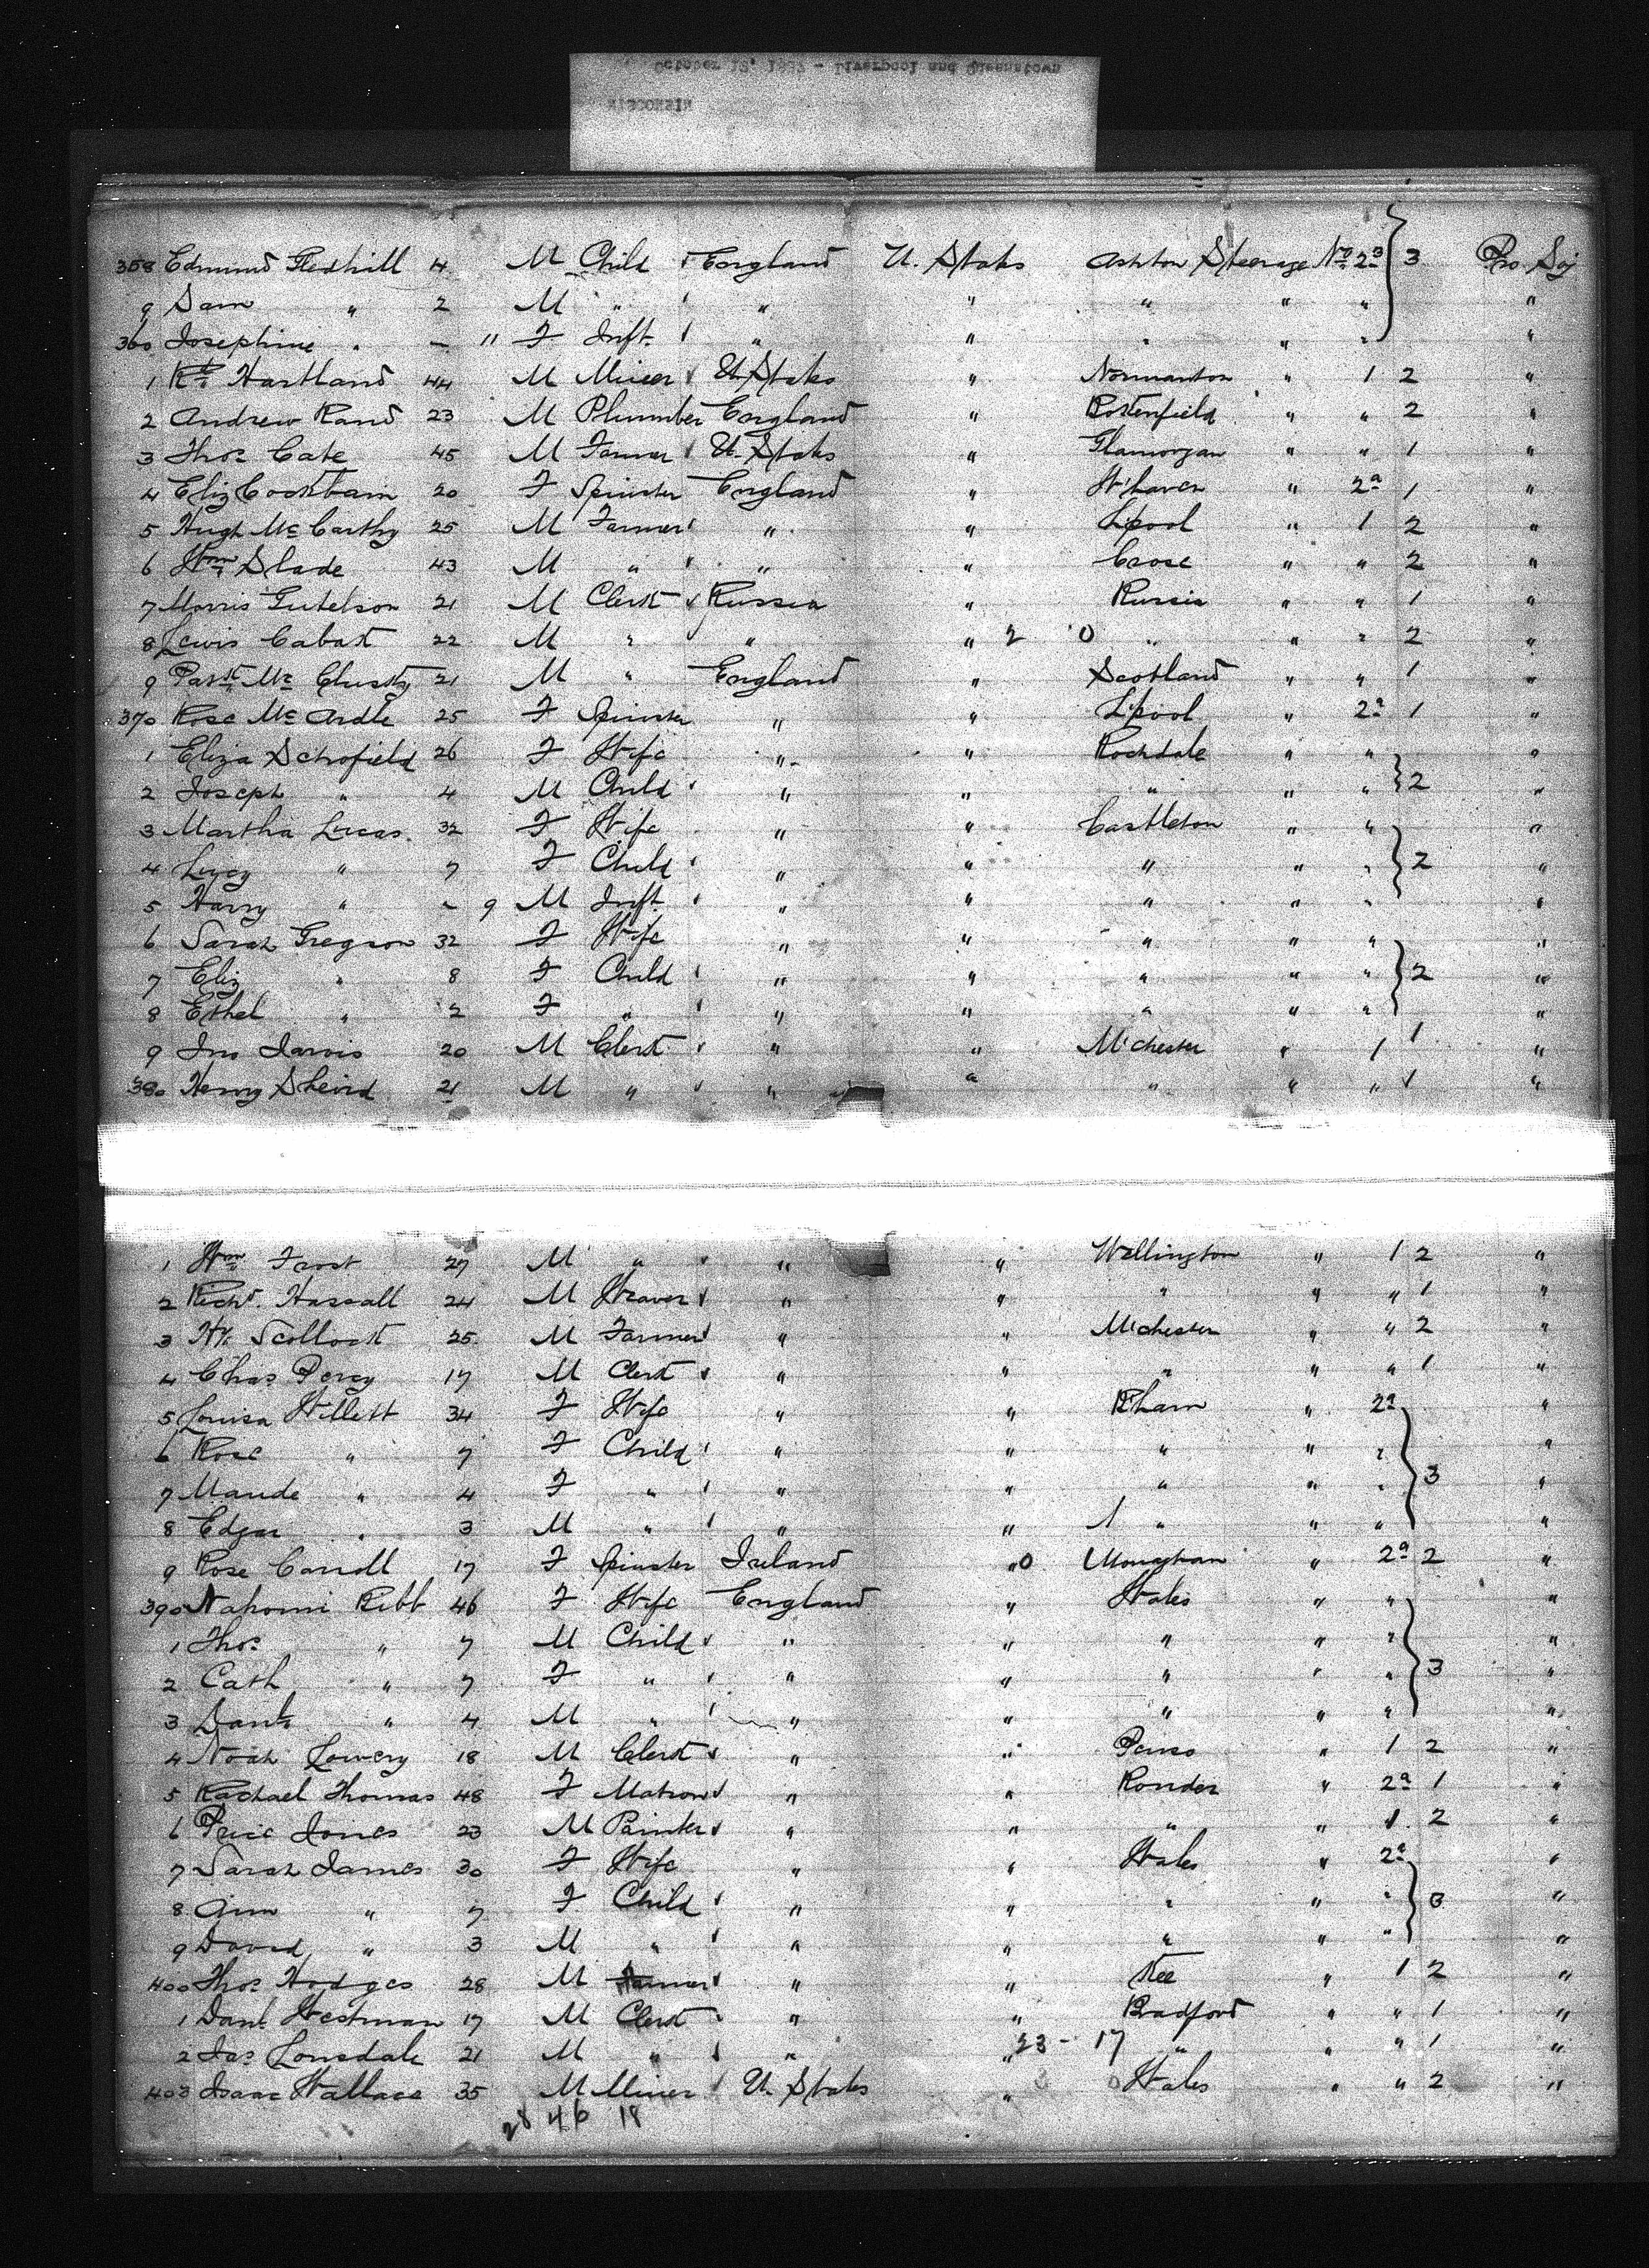 October 12, 1887 - Liverpool and Queenstown
WISCONSIN
358 Edmund Gledhill 4 M Child England U. States Ashton Steerage No 2a 3 Pro Soj
9 Sam " 2 M " " " " " " "
360 Josephine " - 11 F Inft. " " " " " "
1 Rd. Hartland 44 M Miner U. States " Normanton " 1 2 "
2 Andrew Rand 23 M Plumber England " " " 2 "
3 Thos. Cate 45 M Farmer U. States " Glamorgan " " 1 "
4 Eliz Cockbain 20 F Spinster England " W'haven " 2a 1 "
5 Hugh McCarthy 25 M Farmer " " L'pool " 1 2 "
6 Wm Slade 43 M " " " " " 2 "
7 Morris Gutelson 21 M Clerk Russia " Russia " " 1 "
8 Lewis Cabat 22 M " " " 2 0 " " " 2 "
9 Patk. Mc Clusky 21 M " England " Scotland " " 1 "
370 Rose Mc Ardle 25 F Spinster " " L'pool " 2a 1 "
1 Eliza Schofield 26 F Wife " " Rochdale " " "
2 Joseph " 4 M Child " " " " " 2 "
3 Martha Lucas 32 F Wife " " Castleton " " "
4 Lucy " 7 F Child " " " " " 2 "
5 Harry " - 9 M Inft. " " " " " "
6 Sarah Gregson 32 F Wife " " " " " "
7 Eliz " 8 F Child " " " " " 2 "
8 Ethel " 2 F " " " " " " "
9 Jno Jarvis 20 M Clerk " " M'chester " 1 1 "
380 Henry 21 M " " " " " " 1 "
1 Wm Frost 27 M " " " Wellington " 1 2 "
2 Richd. Hassall 24 M Weaver " " " " " 1 "
3 Wm Scollock 25 M Farmer " " M'chester " " 2 "
4 Chas Percy 17 M Clerk " " " " " 1 "
5 Louisa Willett 34 F Wife " " B'ham " 2a "
6 Rose " 7 F Child " " " " " "
7 Maude " 4 F " " " " " " 3 "
8 Edgar " 3 M " " " " " " "
9 Rose Carroll 17 F Spinster Ireland " 0 Monaghan " 2a 2 "
390 Nahomi Ribb 46 F Wife England " Wales " " "
1 Thos. " 7 M Child " " " " " "
2 Cath " 7 F " " " " " " 3 "
3 Danl. " 4 M " " " " " " "
4 Noah Lowery 18 M Clerk " " " 1 2 "
5 Rachael Thomas 48 F Matron " " " 2a 1 "
6 Jones 23 M Painter " " " " 1 2 "
7 Sarah James 30 F Wife " " Wales " 2a "
8 Ann " 7 F Child " " " " " 3 "
9 David " 3 M " " " " " " "
400 Thos. Hodges 28 M Farmer " " " 1 2 "
1 Danl. Westman 17 M Clerk " " Bradford " " 1 "
2 Jas Lonsdale 21 M " " " 23 - 17 " " " 1 "
403 Isaac Wallace 35 M Miner U. States " Wales " " 2 "
28 46 18